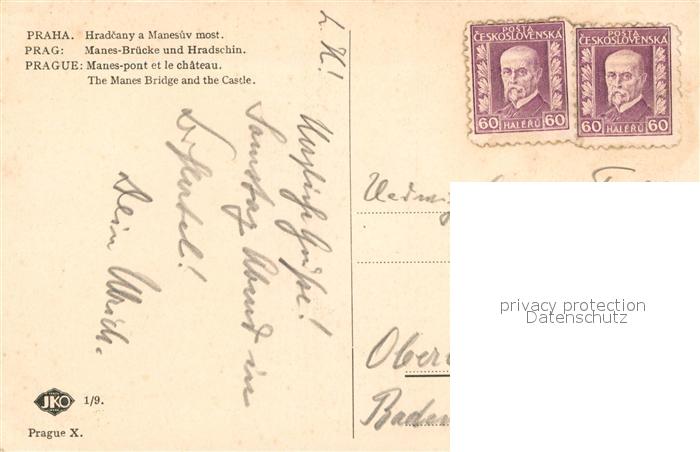 PRAHA. Hradčany a Manesův most.
PRAG: Manes-Brücke und Hradschin.
PRAGUE: Manes-pont et le château.
The Manes Bridge and the Castle.
L. K!
Herzliche Grüße!
Samstag Abend in
Dein Ulrich.
JKO 1/9.
Prague X.
POŠTA
ČESKOSLOVENSKÁ
60 HALÉŘŮ 60
POŠTA
ČESKOSLOVENSKÁ
60 HALÉŘŮ 60
Hedwig
Ober
Baden
privacy protection
Datenschutz